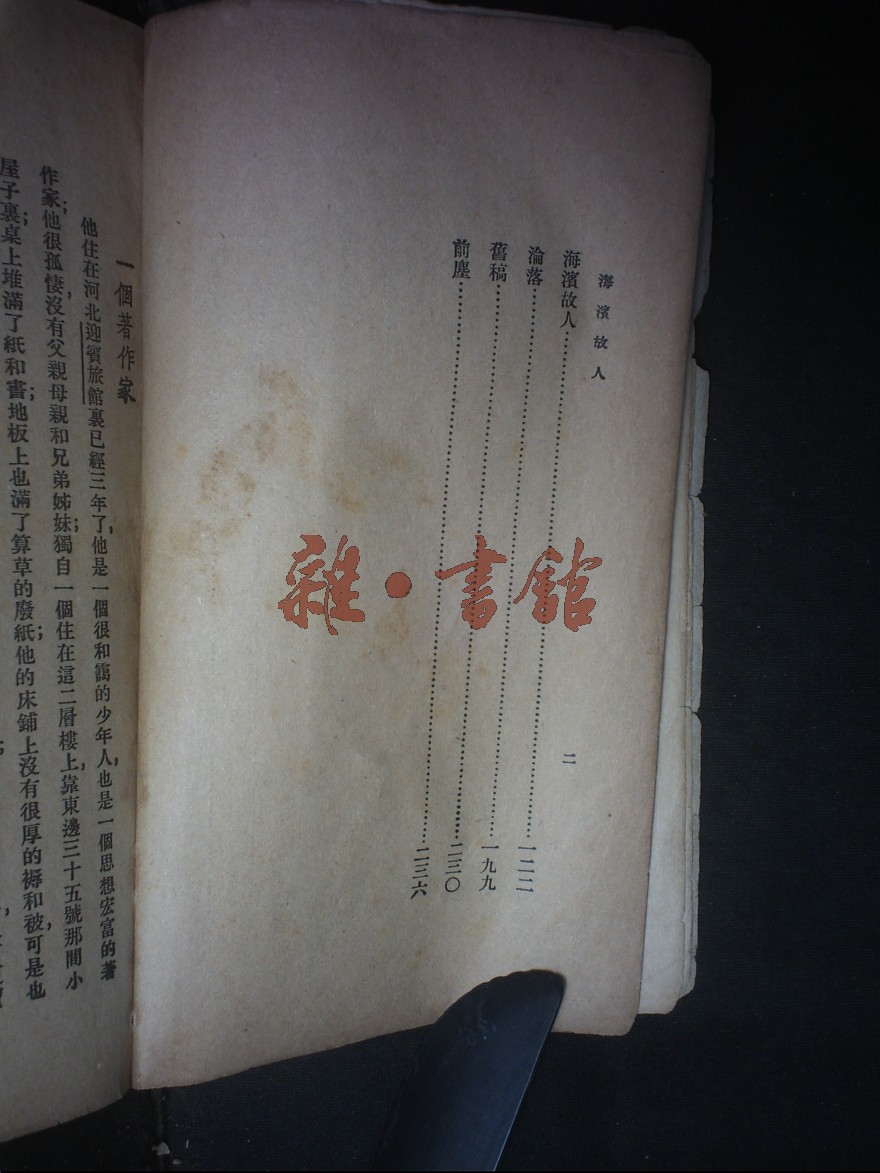 海濱故人
二
海濱故人……一二二
淪落……一九九
舊稿……二三〇
前塵……二三六
一個著作家
他住在河北迎賓旅館裏已經三年了,他是一個很和靄的少年人,也是一個思想宏富的著
作家;他很孤悽,沒有父親母親和兄弟姊妹;獨自一個住在這二層樓上,靠東邊三十五號那間小
屋子裏;桌上堆滿了紙和書;地板上也滿了算草的廢紙;他的床鋪上沒有很厚的褥和被,可是也
雜·書館